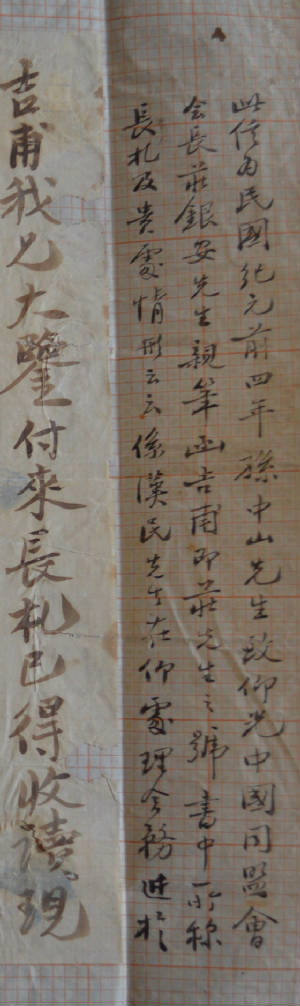 此信为民國紀元前四年孫中山先生致仰光中國同盟會
会長莊銀安先生親筆函吉甫即莊先生之號書中所称
長札及貴處情形云云係漢民先生在仰處理会務進於
吉甫我兄大鑒付來長札已得收讀現